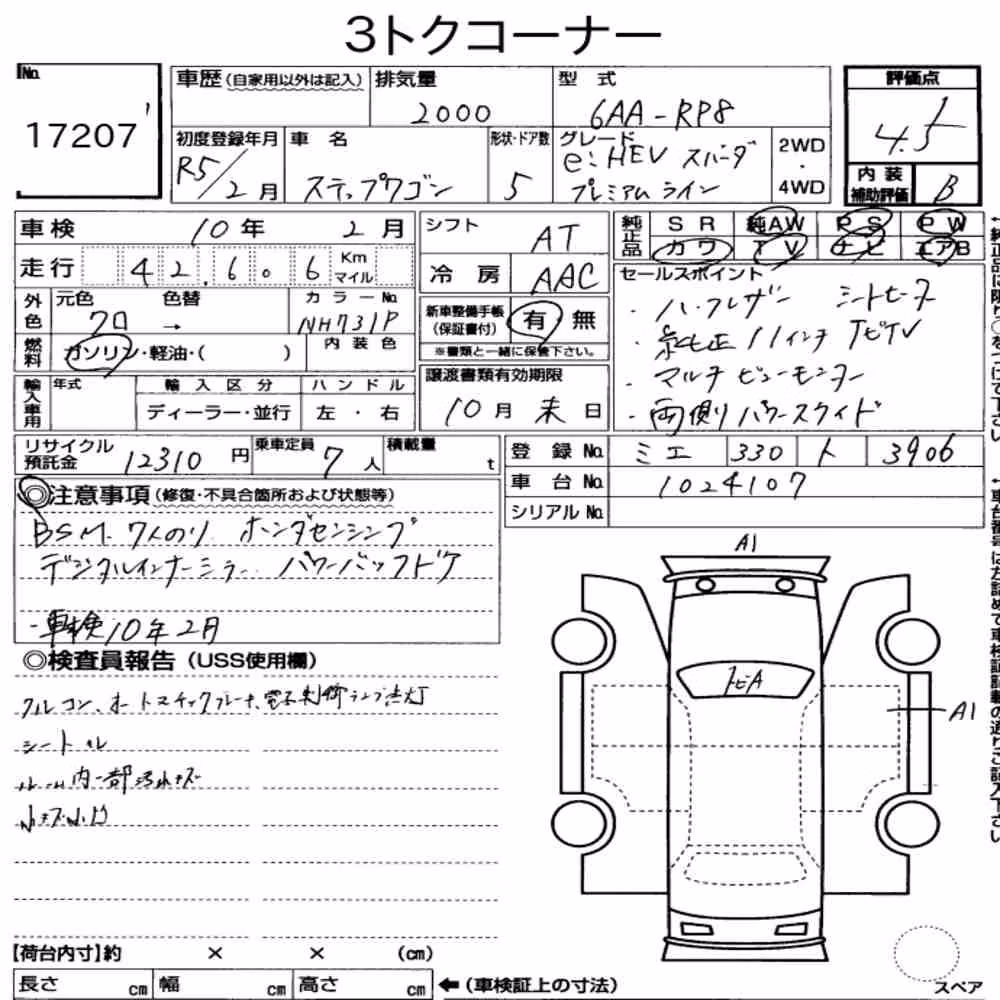 3トクコーナー
No. 17207
車歴 (自家用以外は記入)
排気量 2000
型式 6AA-RP8
評価点 4.5
初度登録年月 R5/2月
車名 ステップワゴン
形状・ドア数 5
グレード e:HEV スパーダ プレミアムライン
2WD・4WD
内装補助評価 B
車検 10年 2月
走行 42.606 Km マイル
シフト AT
冷房 AAC
純正品 SR 純AW PS PW
カワ TV ナビ エアB
外色 元色 クロ → 色替
カラーNo. NH731P
内装色
燃料 ガソリン・軽油・( )
新車整備手帳(保証書付) 有 無
※書類と一緒に保管下さい。
セールスポイント
・ハーフレザー シートヒーター
・純正11インチナビTV
・マルチビューモニター
・両側パワースライド
輸入車用 年式 輸入区分 ディーラー・並行 ハンドル 左・右
譲渡書類有効期限 10月末日
リサイクル預託金 12310円
乗車定員 7人
積載量 t
登録No. ミエ 330 ト 3906
車台No. 1024107
シリアルNo.
◎注意事項 (修復・不具合箇所および状態等)
BSM. 7人のり ホンダセンシング
デジタルインナーミラー パワーバックドア
・車検10年2月
◎検査員報告 (USS使用欄)
シート
内一部汚れキズ
A1
トビA
A1
【荷台内寸】約 × × (cm)
長さ cm 幅 cm 高さ cm ←(車検証上の寸法)
スペア